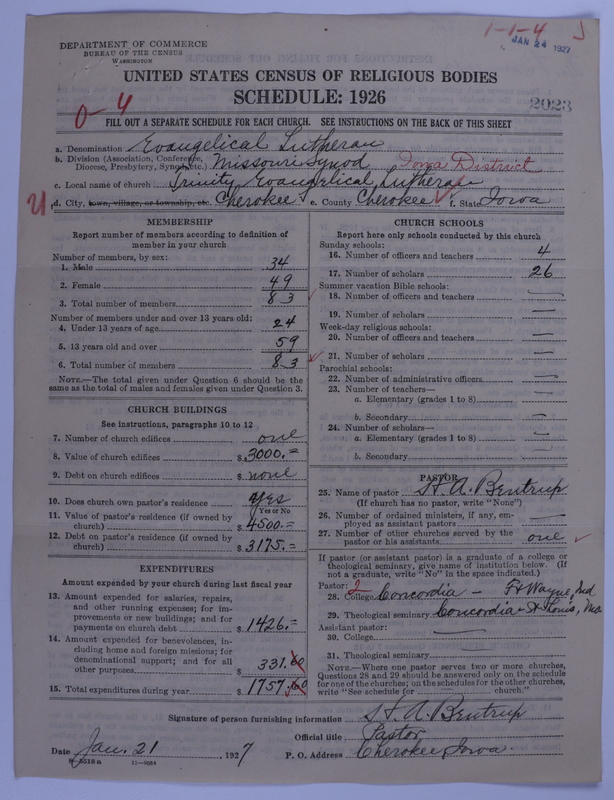 1-1-4
JAN 24 1927
DEPARTMENT OF COMMERCE
BUREAU OF THE CENSUS
WASHINGTON
UNITED STATES CENSUS OF RELIGIOUS BODIES
SCHEDULE: 1926
0-4
2023
FILL OUT A SEPARATE SCHEDULE FOR EACH CHURCH. SEE INSTRUCTIONS ON THE BACK OF THIS SHEET
a. Denomination Evangelical Lutheran
b. Division (Association, Conference, Diocese, Presbytery, Synod, etc.) Missouri Synod Iowa District
c. Local name of church Trinity Evangelical Lutheran
d. City, town, village, or township, etc. Cherokee e. County Cherokee f. State Iowa
MEMBERSHIP
Report number of members according to definition of
member in your church
Number of members, by sex:
1. Male 34
2. Female 49
3. Total number of members 83
Number of members under and over 13 years old:
4. Under 13 years of age 24
5. 13 years old and over 59
6. Total number of members 83
NOTE.—The total given under Question 6 should be
same as the total of males and females given under Question 3.
CHURCH BUILDINGS
See instructions, paragraphs 10 to 12
7. Number of church edifices one
8. Value of church edifices $ 3000.=
9. Debt on church edifices $ none
10. Does church own pastor's residence yes
Yes or No
11. Value of pastor's residence (if owned by
church) $ 4500.=
12. Debt on pastor's residence (if owned by
church) $ 3175.=
EXPENDITURES
Amount expended by your church during last fiscal year
13. Amount expended for salaries, repairs,
and other running expenses; for im-
provements or new buildings; and for
payments on church debt $ 1426.=
14. Amount expended for benevolences, in-
cluding home and foreign missions; for
denominational support; and for all
other purposes $ 331.60
15. Total expenditures during year $ 1757.60
CHURCH SCHOOLS
Report here only schools conducted by this church
Sunday schools:
16. Number of officers and teachers 4
17. Number of scholars 26
Summer vacation Bible schools:
18. Number of officers and teachers —
19. Number of scholars —
Week-day religious schools:
20. Number of officers and teachers —
21. Number of scholars —
Parochial schools:
22. Number of administrative officers —
23. Number of teachers—
a. Elementary (grades 1 to 8) —
b. Secondary —
24. Number of scholars—
a. Elementary (grades 1 to 8) —
b. Secondary —
PASTOR
25. Name of pastor H. A. Bentrup
(If church has no pastor, write "None")
26. Number of ordained ministers, if any, em-
ployed as assistant pastors —
27. Number of other churches served by the
pastor or his assistants one
If pastor (or assistant pastor) is a graduate of a college or
theological seminary, give name of institution below. (If
not a graduate, write "No" in the space indicated.)
Pastor: 2
28. College Concordia - Ft Wayne, Ind
29. Theological seminary Concordia - St Louis, Mo
Assistant pastor:
30. College —
31. Theological seminary —
NOTE.—Where one pastor serves two or more churches,
Questions 28 and 29 should be answered only on the schedule
for one of the churches; on the schedules for the other churches,
write "See schedule for church."
Signature of person furnishing information H. A. Bentrup
Official title Pastor
Date Jan. 21, 1927 P. O. Address Cherokee, Iowa
8-5518a 11-9084